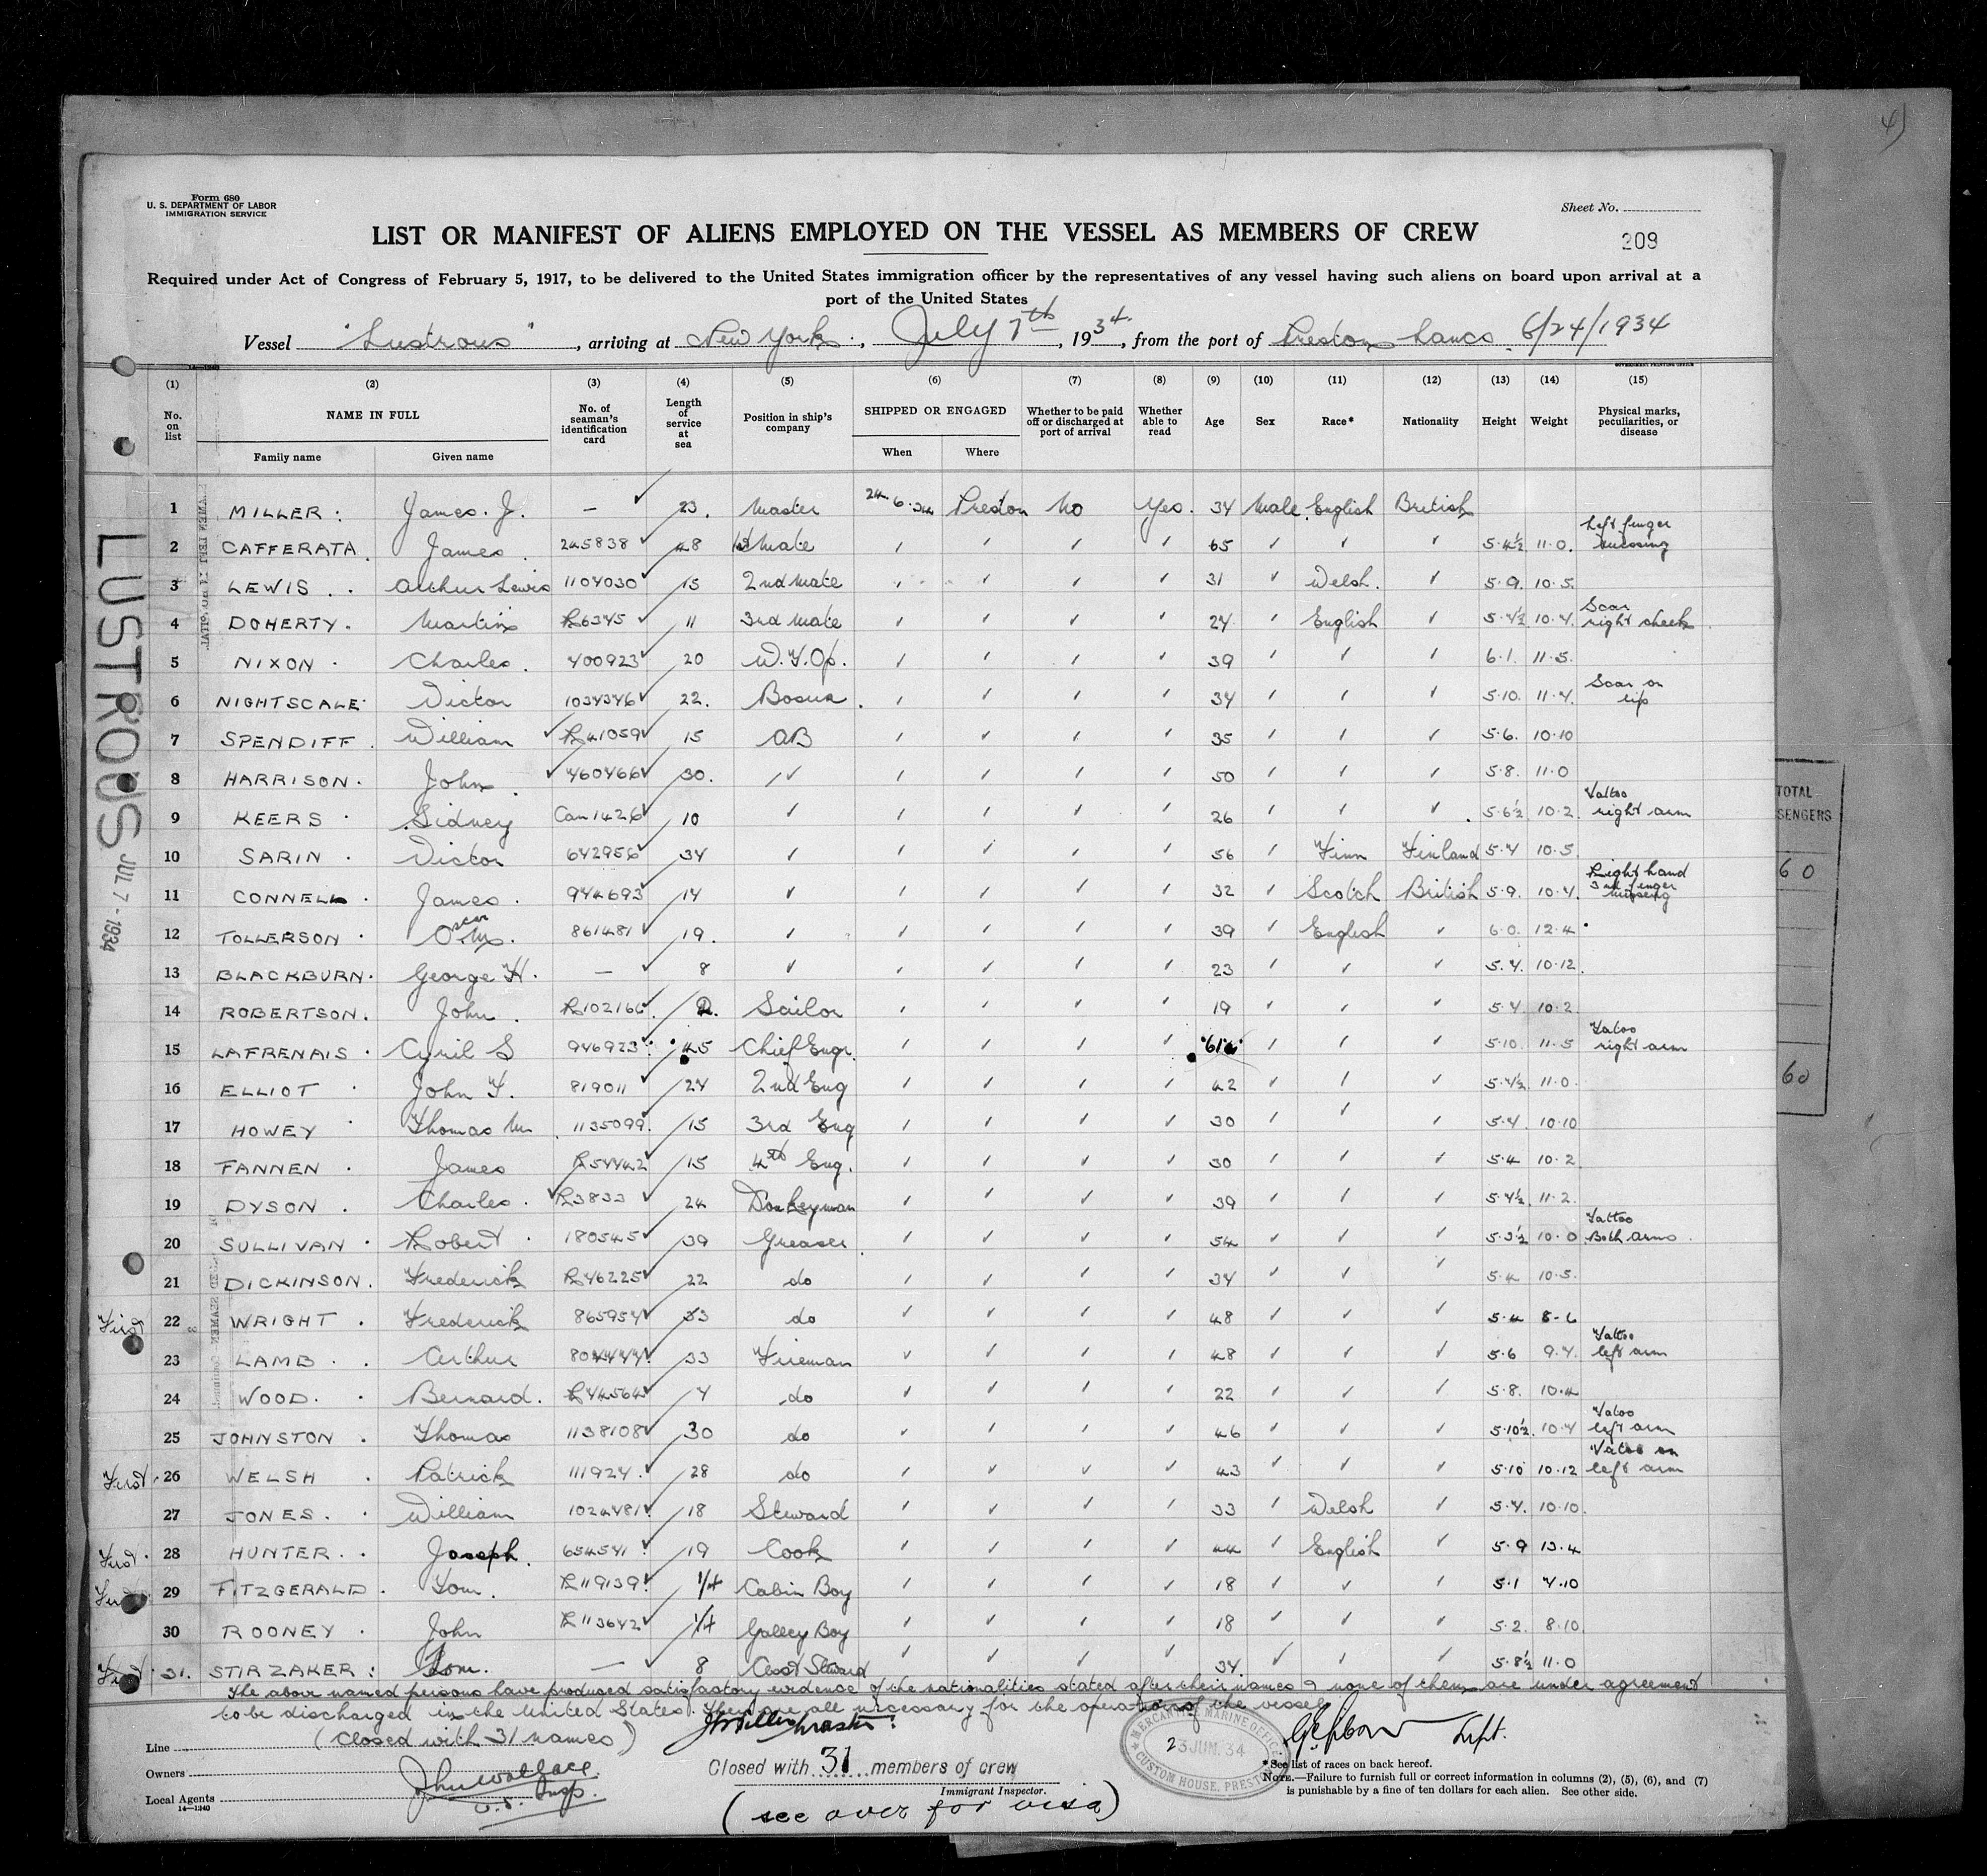 4)
Form 680
U. S. DEPARTMENT OF LABOR
IMMIGRATION SERVICE
Sheet No.
209
LIST OR MANIFEST OF ALIENS EMPLOYED ON THE VESSEL AS MEMBERS OF CREW
Required under Act of Congress of February 5, 1917, to be delivered to the United States immigration officer by the representatives of any vessel having such aliens on board upon arrival at a
port of the United States
Vessel "Lustrous", arriving at New York, July 7th, 1934, from the port of Preston Lancs 6/24/1934
(1) (2) (3) (4) (5) (6) (7) (8) (9) (10) (11) (12) (13) (14) (15)
No. on list NAME IN FULL No. of seaman's identification card Length of service at sea Position in ship's company SHIPPED OR ENGAGED Whether to be paid off or discharged at port of arrival Whether able to read Age Sex Race* Nationality Height Weight Physical marks, peculiarities, or disease
Family name Given name When Where
1 MILLER: James. J. — 23. Master 24.6.34 Preston No Yes. 34 Male English British
2 CAFFERATA. James. 245838 48 1st Mate 65 5.4½ 11.0. Left finger missing
3 LEWIS. Arthur Lewis 1104030 15 2nd Mate 31 Welsh. 5.9. 10.5.
4 DOHERTY. Martin R6345 11 3rd Mate 24 English 5.4½ 10.4. Scar right cheek
5 NIXON. Charles. 400923 20 W.T.Op. 39 6.1. 11.5.
6 NIGHTSCALE. Victor 1034346 22. Bosun. 34 5.10. 11.4. Scar on lip
7 SPENDIFF. William R41059 15 AB 35 5.6. 10.10
8 HARRISON. John. 460466 30. 50 5.8. 11.0
9 KEERS. Sidney Can1426 10 26 5.6½ 10.2. Tattoo right arm
10 SARIN. Victor 642956 34 56 Finn Finland 5.4 10.5.
11 CONNELL. James. 944693 14 32 Scotch British 5.9. 10.4. Right hand 3rd finger missing
12 TOLLERSON. Oscar M. 861481 19. 39 English 6.0. 12.4
13 BLACKBURN. George H. — 8 23 5.4. 10.12.
14 ROBERTSON. John. R102166 2. Sailor 19 5.4. 10.2
15 LAFRENAIS. Cyril S 946923 45 Chief Engr. 61 5.10. 11.5 Tatoo right arm
16 ELLIOT. John T. 819011 24 2nd Eng 42 5.4½ 11.0.
17 HOWEY. Thomas M. 1135099. 15 3rd Eng 30 5.4. 10.10
18 FANNEN. James R54442 15 4th Eng. 30 5.4 10.2.
19 DYSON. Charles. R3833 24 Donkeyman 39 5.4½ 11.2.
20 SULLIVAN. Robert. 180545 39 Greaser. 54 5.3½ 10.0 Tattoo Both arms.
21 DICKINSON. Frederick R46225 22 do 34 5.4 10.5.
First 22 WRIGHT. Frederick 865954 33 do 48 5.4 8-6
23 LAMB. Arthur 804444. 33 Fireman 48 5.6 9.4. Tattoo left arm
24 WOOD. Bernard. R44564 4 do 22 5.8. 10.4
25 JOHNSTON. Thomas 1138108 30 do 46 5.10½. 10.4 Tatoo left arm
First. 26 WELSH. Patrick 111924. 28 do 43 5.10 10.12 Tatoo on left arm
27 JONES. William 1024481 18 Steward 33 Welsh 5.4. 10.10.
First. 28 HUNTER. Joseph. 654541 19 Cook 44 English 5.9 13.4
First 29 FITZGERALD. Tom. R119139 1/4 Cabin Boy 18 5.1 7.10
30 ROONEY. John R113642 1/4 Galley Boy 18 5.2. 8.10.
First. 31. STIRZAKER: Tom. — 8 Asst Steward 34. 5.8½ 11.0
The above named persons have produced satisfactory evidence of the nationalities stated after their names & none of them are under agreement
to be discharged in the United States. They are all necessary for the operation of the vessel
(Closed with 31 names) J Miller Master.
Line
Owners
Local Agents
14—1240
John Wallace
U.S. Insp.
Closed with 31 members of crew
Immigrant Inspector.
(see over for visa)
MERCANTILE MARINE OFFICE
23 JUN. 34
CUSTOM HOUSE, PRESTON
Supt.
*See list of races on back hereof.
NOTE.—Failure to furnish full or correct information in columns (2), (5), (6), and (7)
is punishable by a fine of ten dollars for each alien. See other side.
LUSTROUS JUL 7-1934
TOTAL
SENGERS
60
60